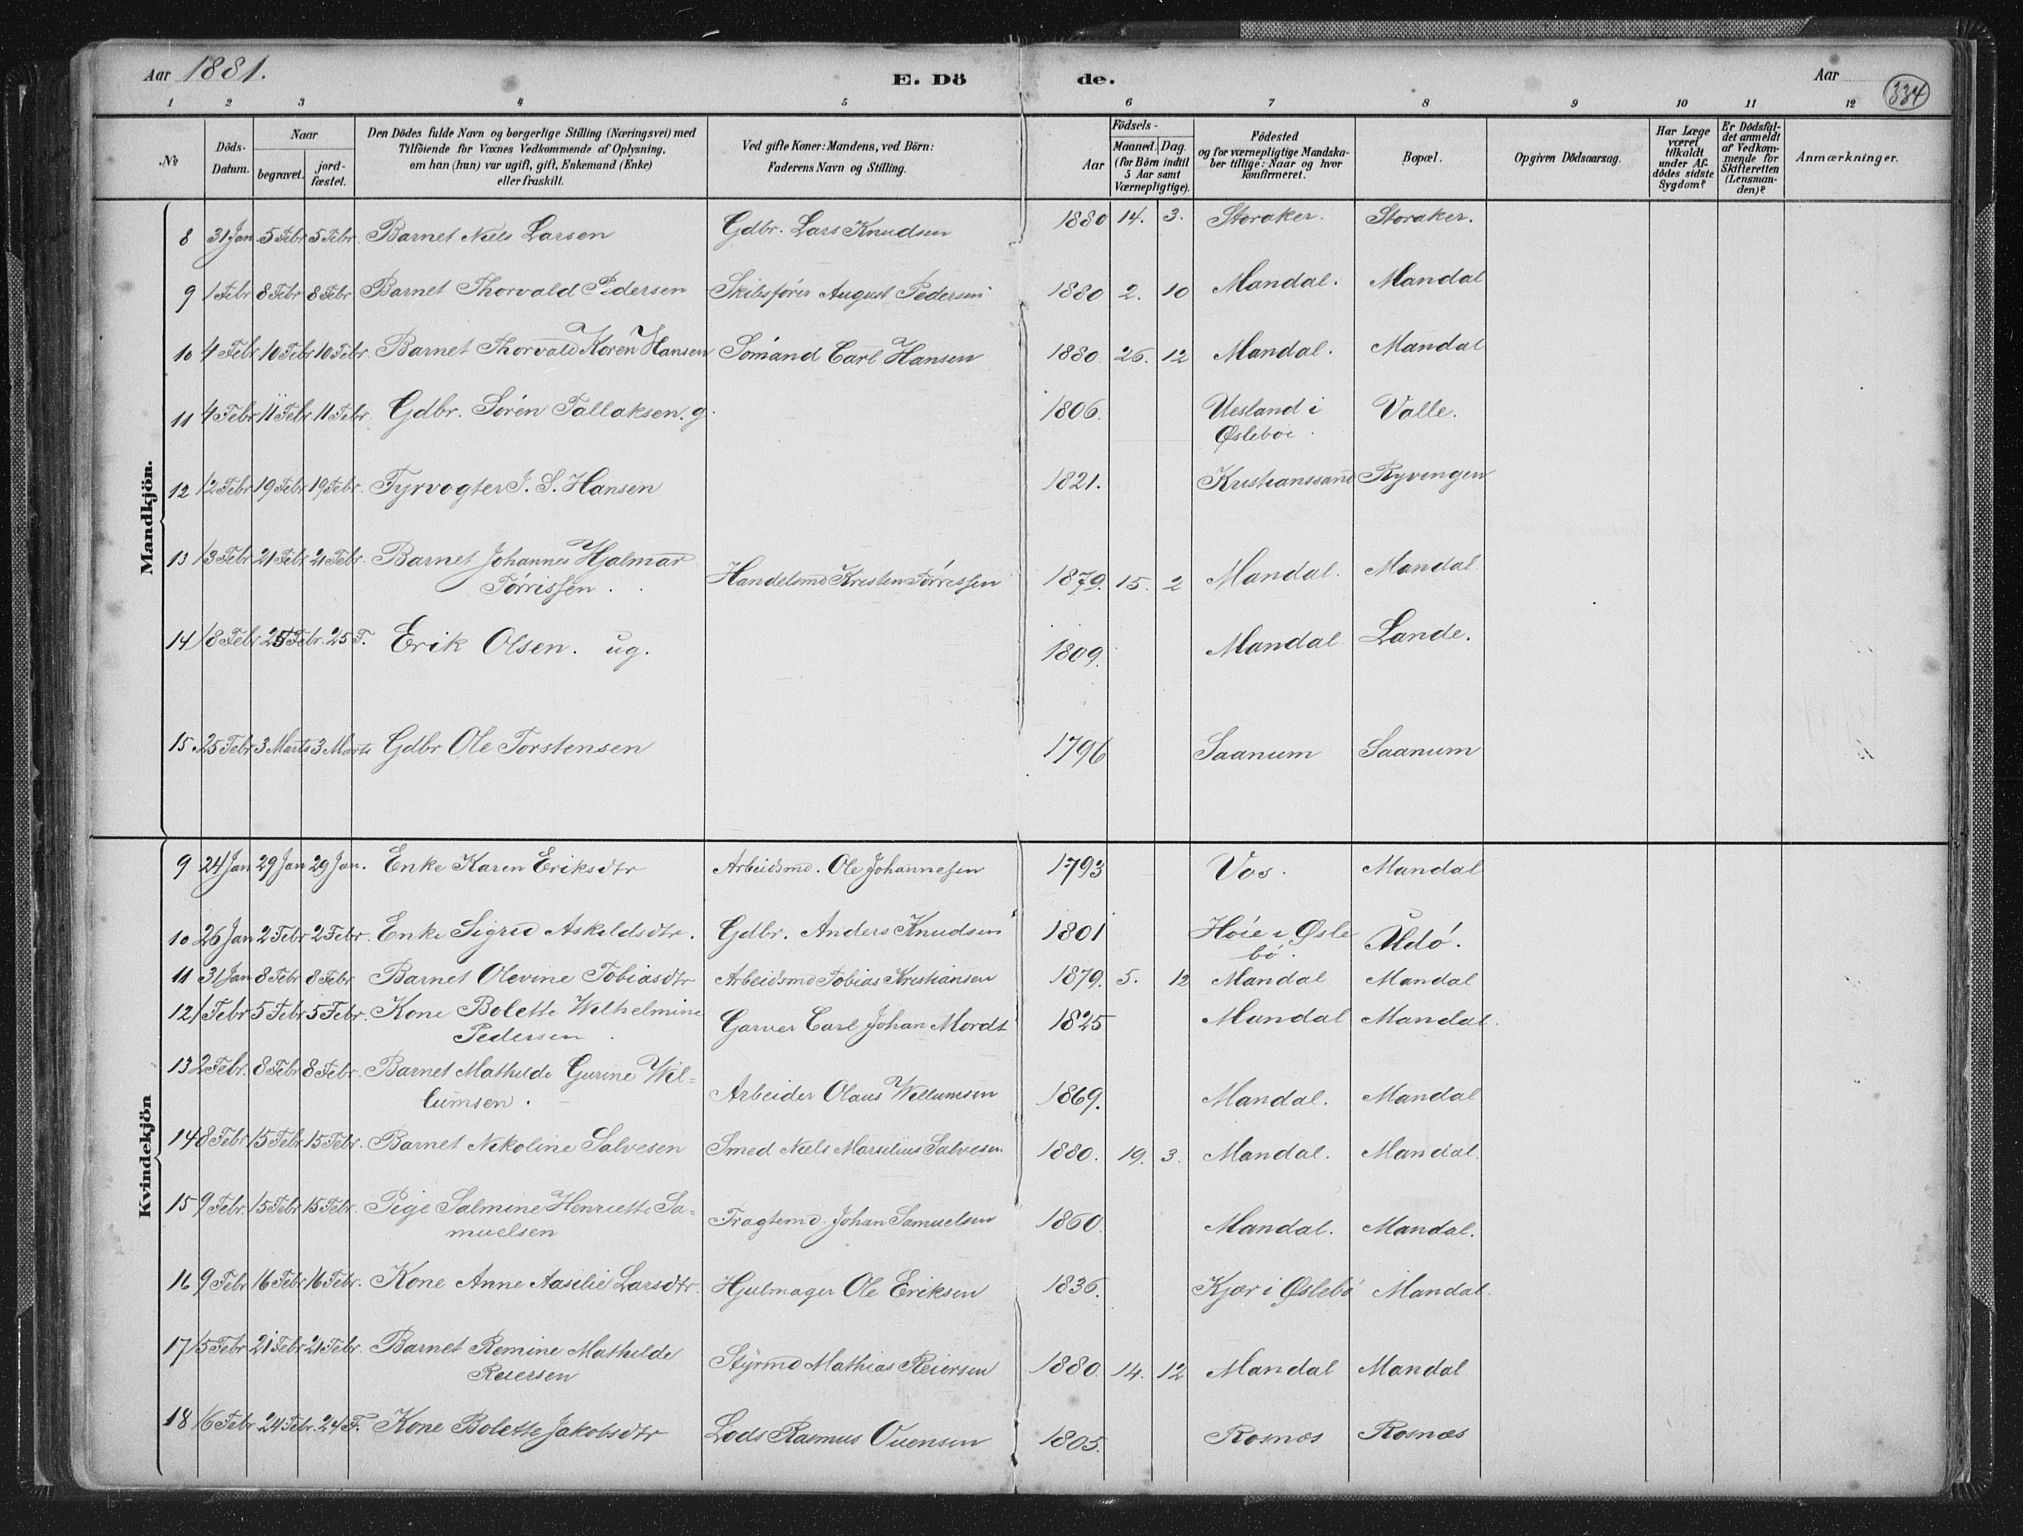 Aar 1881. E. Dö de. Aar 334
1 2 3 4 5 6 7 8 9 10 11 12
No Döds-Datum. Naar begravet. jordfæstet. Den Dödes fulde Navn og borgerlige Stilling (Næringsvei) med
Tilföiende for Voxnes Vedkommende af Oplysning,
om han (hun) var ugift, gift, Enkemand (Enke)
eller fraskilt.
Ved gifte Koner: Mandens, ved Börn:
Faderens Navn og Stilling.
Födsels-
Aar Maaned. Dag.
(for Börn indtil
5 Aar samt
Værnepligtige).
Födested
og for værnepligtige Mandska-
ber tillige: Naar og hvor
konfirmeret.
Bopæl.
Opgiven Dödsaarsag.
Har Læge
været
tilkaldt
under Af-
dödes sidste
Sygdom?
Er Dödsfal-
det anmeldt
af Vedkom-
mende for
Skifteretten
(Lensman-
den)?
Anmærkninger.
Mandkjön.
8 31 Jan 5 Febr 5 Febr Barnet Niels Larsen Gdbr. Lars Knudsen 1880 14. 3. Storaker. Storaker.
9 1 Febr 8 Febr 8 Febr Barnet Thorvald Pedersen Skibsfører August Pedersen 1880 2. 10 Mandal. Mandal
10 4 Febr 10 Febr 10 Febr. Barnet Thorvald Koren Hansen Sømand Carl Hansen 1880. 26. 12 Mandal. Mandal
11 4 Febr 11 Febr 11 Febr. Gdbr. Søren Tallaksen. g. 1806. Uesland i Valle.
Øslebøe.
12 12 Febr 19 Febr 19 Febr. Fyrvogter J. S. Hansen 1821. Kristianssand Ryvingen
13 13 Febr 21 Febr 21 Febr. Barnet Johannes Hjalmar
Tørrissen. Handelsmd Kristen Tørrissen 1879. 15. 2 Mandal. Mandal.
14 18 Febr 25 Febr. 25 F. Erik Olsen. ug. 1809. Mandal Lande.
15 25 Febr 3 Marts 3 Marts Gdbr Ole Torstensen 1796 Saanum Saanum
Kvindekjön
9 24 Jan 29 Jan 29 Jan. Enke Karen Eriksdtr Arbeidsmd. Ole Johannesen 1793 Vos. Mandal
10 26 Jan 2 Febr 2 Febr. Enke Sigrid Askildsdtr. Gdbr. Anders Knudsen 1801 Høie i Øsle Udø.
bø.
11 31 Jan 8 Febr 8 Febr. Barnet Olevine Tobiasdtr Arbeidsmd Tobias Kristiansen 1879. 5. 12 Mandal Mandal
12 1 Febr 5 Febr 5 Febr. Kone Bolette Wilhelmine
Pedersen. Garver Carl Johan Mordt 1825 Mandal Mandal.
13 2 Febr. 8 Febr 8 Febr. Barnet Mathilde Gurine Wil-
lumsen. Arbeider Olaus Willumsen 1869. Mandal. Mandal
14 8 Febr 15 Febr 15 Febr. Barnet Nikoline Salvesen Smed Niels Marselius Salvesen 1880. 19. 3. Mandal. Mandal.
15 9 Febr. 15 Febr. 15 Febr. Pige Salmine Henriette Sa-
muelsen Fragtemd. Johan Samuelsen 1860. Mandal. Mandal.
16 9 Febr. 16 Febr 16 Febr. Kone Anne Aaselie Larsdtr. Hjulmager Ole Eriksen 1836. Kjær i Øslebø Mandal.
17 15 Febr 21 Febr. 21 Febr. Barnet Remine Mathilde
Reiersen Styrmd Mathias Reiersen 1880. 14. 12 Mandal Mandal
18 16 Febr 24 Febr. 24 F. Kone Bolette Jakobsdtr Lods Rasmus Ouensen 1805. Rosnæs Rosnæs